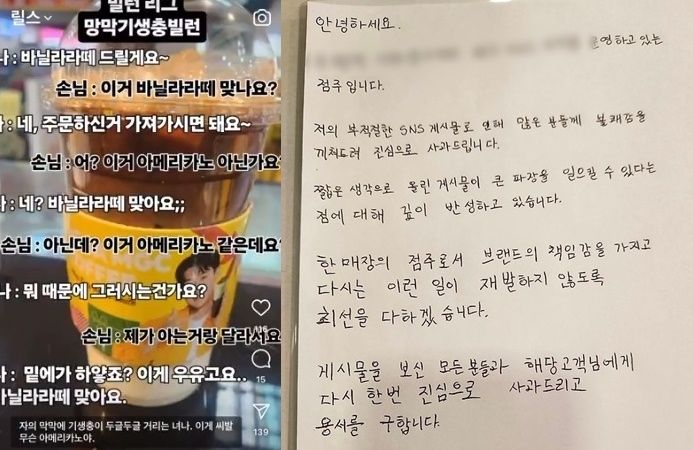 릴스
빌런 리그
망막기생충빌런
나 : 바닐라라떼 드릴게요~
손님 : 이거 바닐라라떼 맞나요?
나 : 네, 주문하신거 가져가시면 돼요~
손님 : 어? 이거 아메리카노 아닌가요?
나 : 네? 바닐라라떼 맞아요;;
손님 : 아닌데? 이거 아메리카노 같은데요?
나 : 뭐 때문에 그러시는건가요?
손님 : 제가 아는거랑 달라서요
나 : 밑에가 하얗죠? 이게 우유고요..
바닐라라떼 맞아요.
15
139
자의 망막에 기생충이 두글두글 거리는 녀나. 이게 씨발
무슨 아메리카노야.
안녕하세요.
영하고 있는
점주입니다.
저의 부적절한 SNS 게시물로 인해 많은 분들께 불쾌감을
끼쳐드려 진심으로 사과드립니다.
짧은 생각으로 올린 게시물이 큰 파장을 일으킬 수 있다는
점에 대해 깊이 반성하고 있습니다.
한 매장의 점주로서 브랜드의 책임감을 가지고
다시는 이런 일이 재발하지 않도록
최선을 다하겠습니다.
게시물을 보신 모든분들과 해당고객님에게
다시 한번 진심으로 사과드리고
용서를 구합니다.